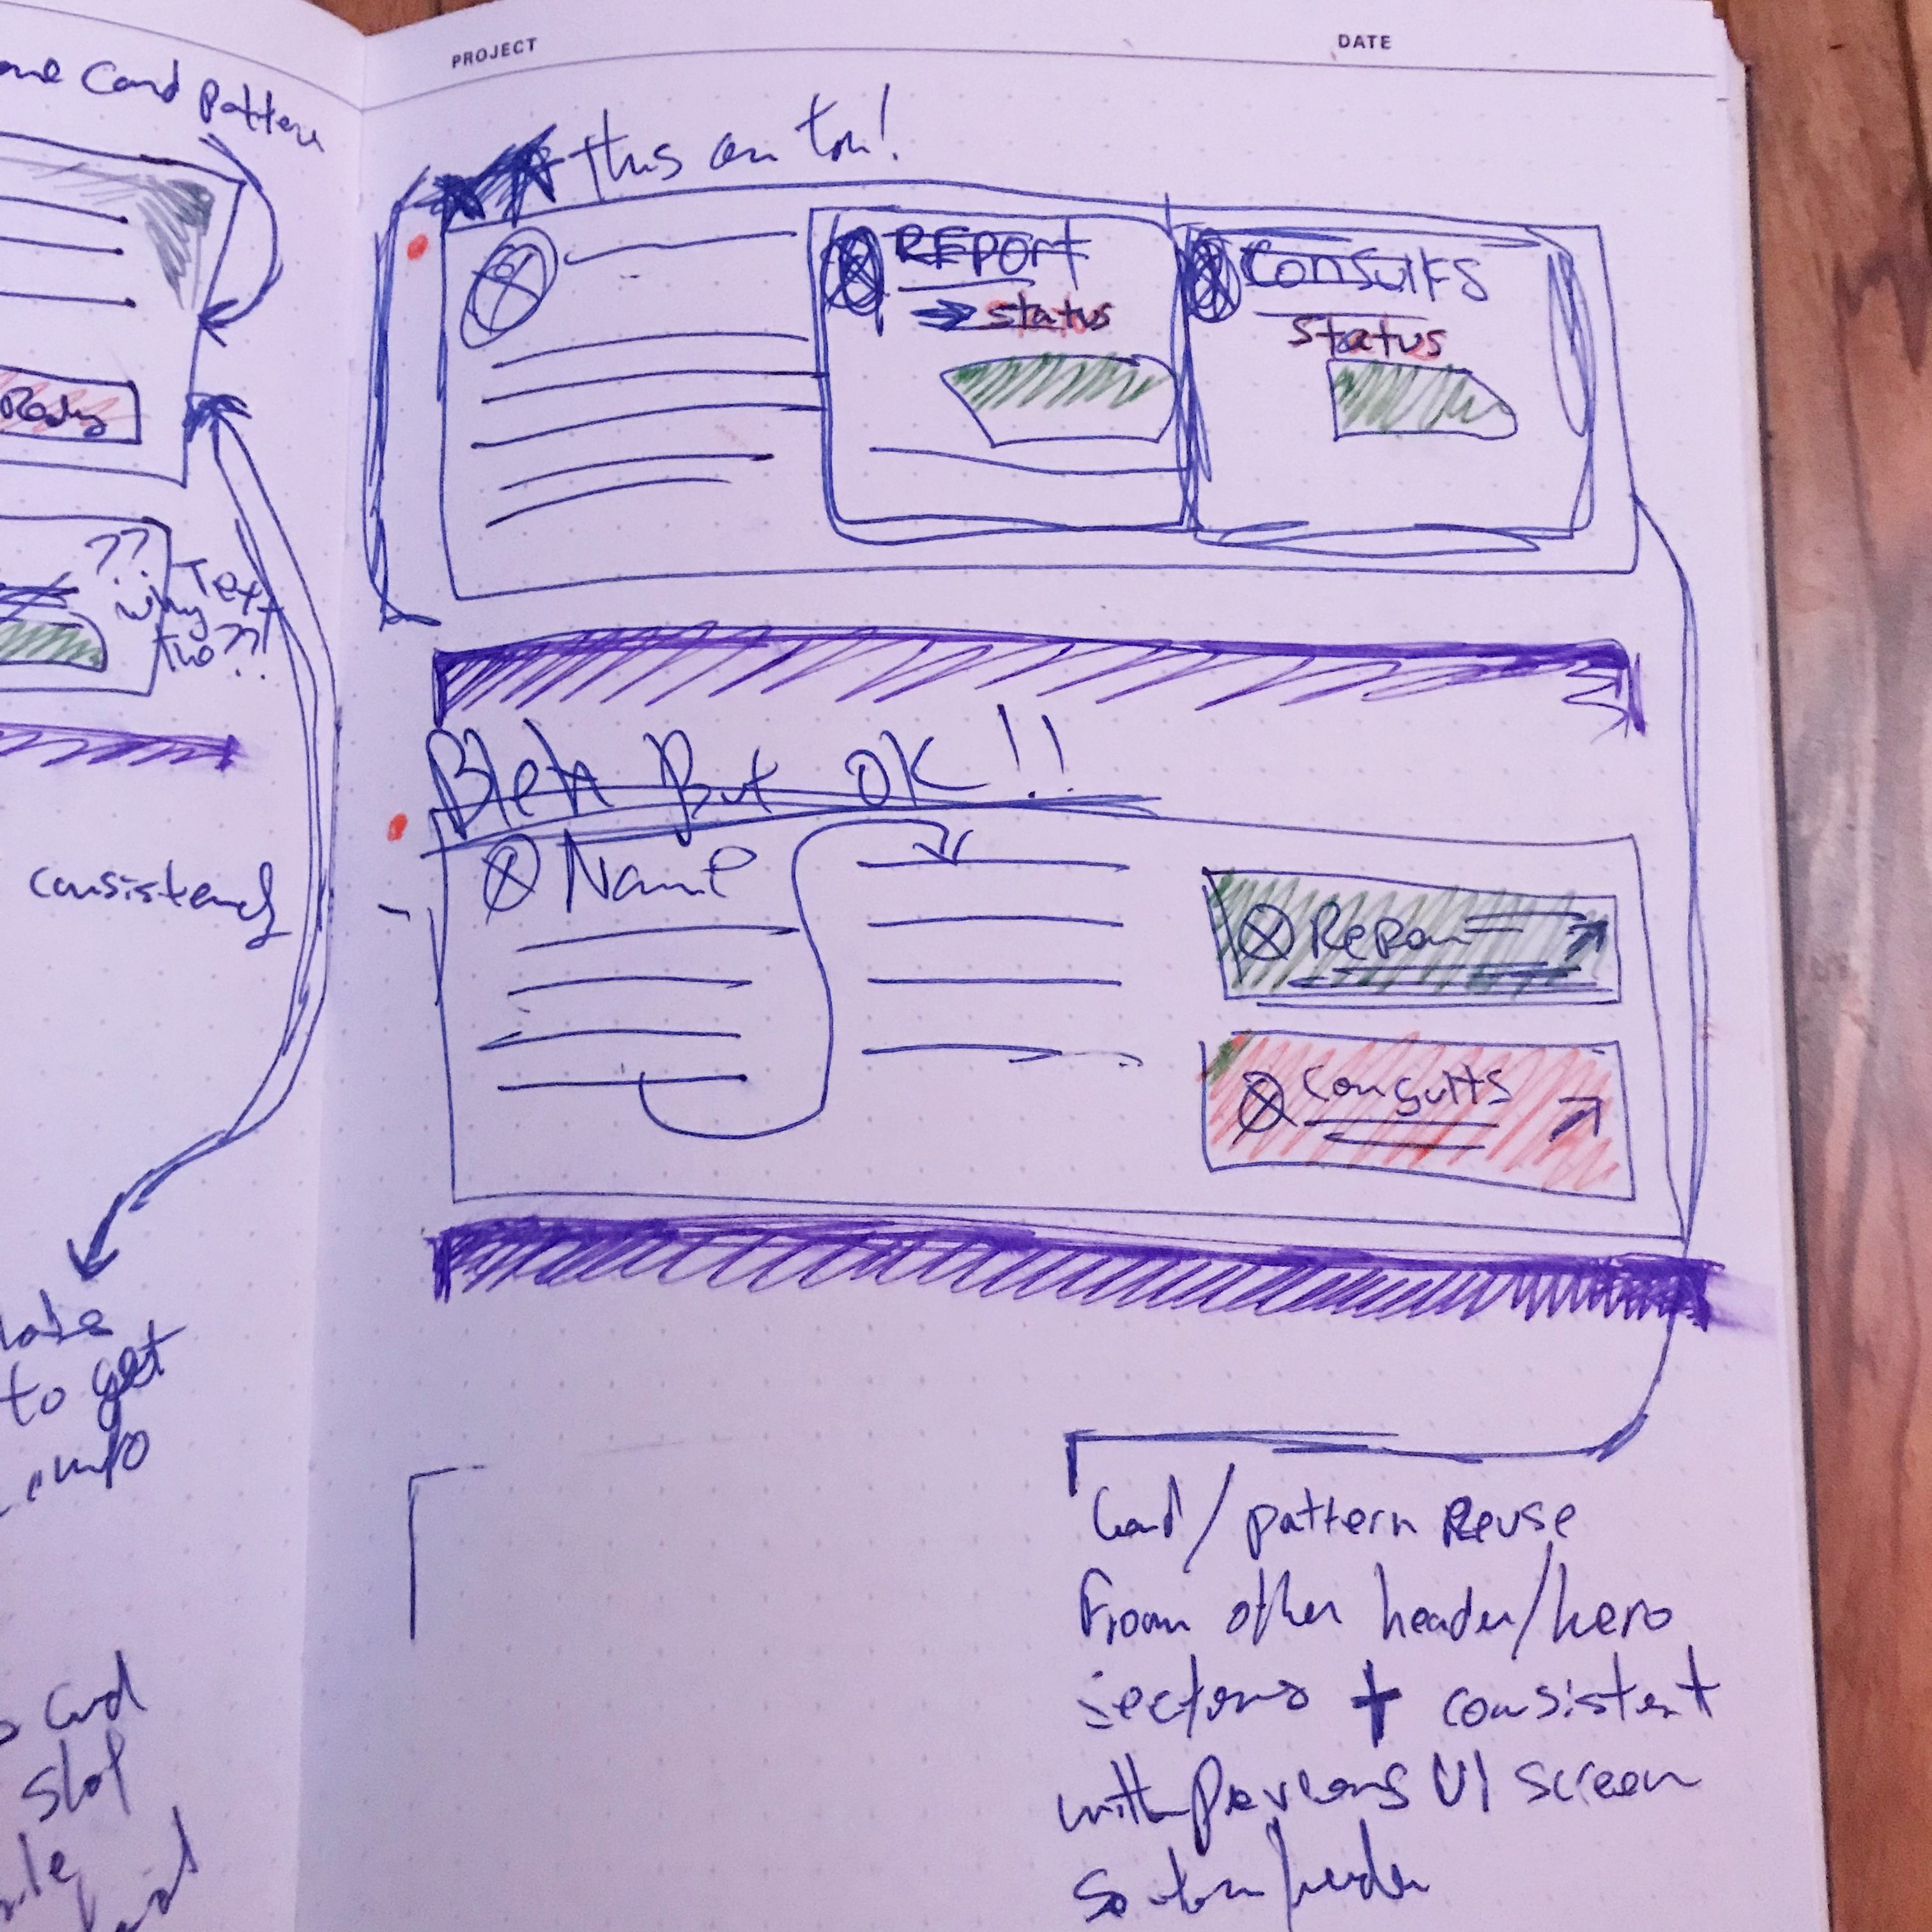 Card Pattern
Ready
??
why Text
Tho??
consistency
to get
info
Card
slot
PROJECT
DATE
this on
REPORT
status
Consults
Status
Bleh But OK!!
Name
Report
Consults
Card/pattern Reuse
From other header/hero
sections + consistent
with Previous UI screen